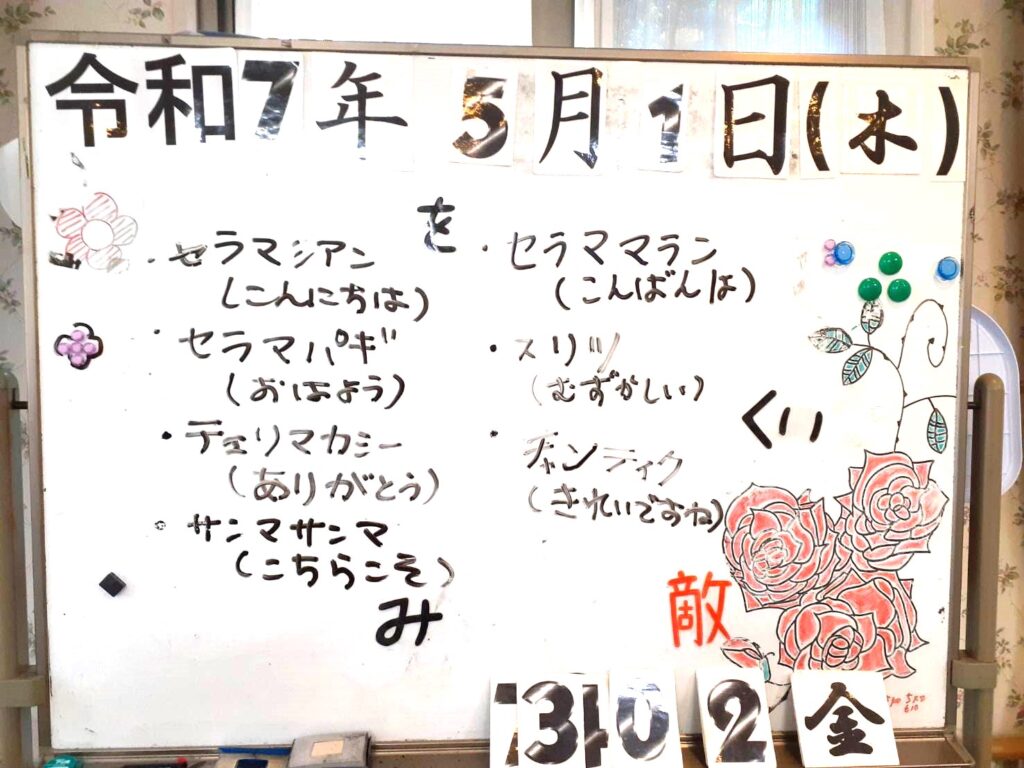 令和7年 5月1日(木)
を
・セラマシアン
(こんにちは)
・セラマパギ
(おはよう)
・テェリマカミー
(ありがとう)
・サンマサンマ
(こちらこそ)
み
・セラママラン
(こんばんは)
・スリッ
(むずかしい)
・チャンティク
(きれいですね)
くい
敵
3 0 2 金